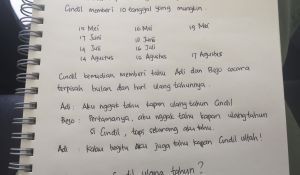 Cindil memberi 10 tanggal yang mungkin
15 Mei 16 Mei 19 Mei
17 Juni 18 Juni
14 Juli 16 Juli
14 Agustus 15 Agustus 17 Agustus
Cindil kemudian memberi tahu Adi dan Bejo secara
terpisah bulan dan hari ulang tahunnya.
Adi : Aku nggak tahu kapan ulang tahun Cindil
Bejo : Pertamanya, aku nggak tahu kapan ulang tahun
si Cindil, tapi sekarang aku tahu.
Adi : Kalau begitu Aku juga tahu kapan Cindil ultah!
ulang tahun ?